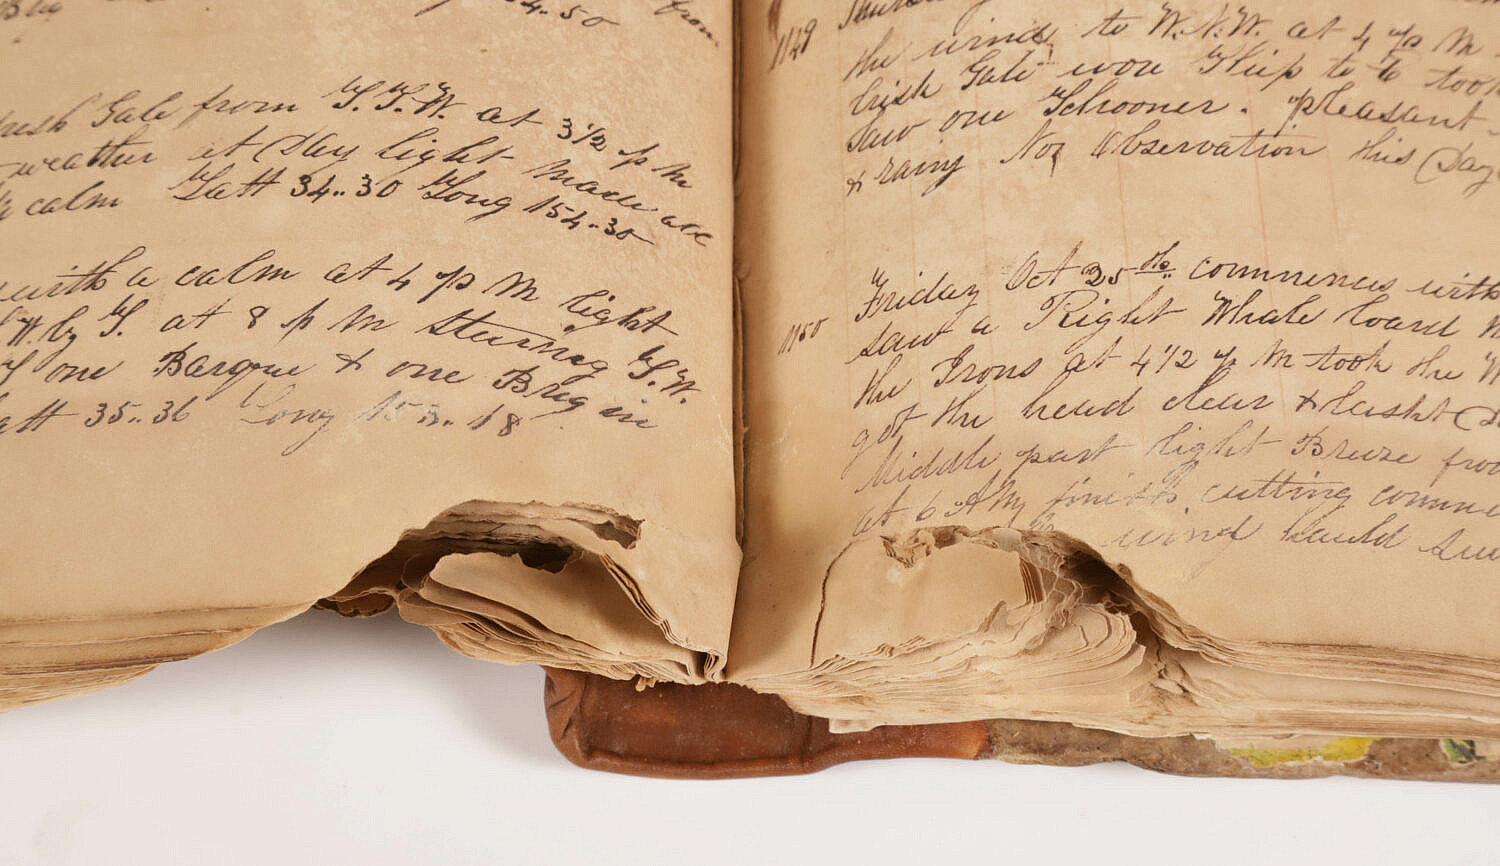 Brig
34.50
from
fresh Gale from S.S.W. at 3 1/2 p m
weather at Day light made all
calm Latt 34..30 Long 154..30
with a calm at 4 p M light
W. by S. at 8 p M Steering S.W.
one Barque & one Brig in
Latt 35..36 Long 18
1149
the wind to W.N.W. at 4 p M
brisk Gale wore Ship to took
Saw one Schooner. pleasant
& rainy No Observation this Day
1150
Friday Oct 25th commences with
saw a Right Whale loard
the Irons at 4 1/2 p M took the
got the head clear & lasht
Middle part light Breeze from
at 6 A M finisht cutting
wind hauld